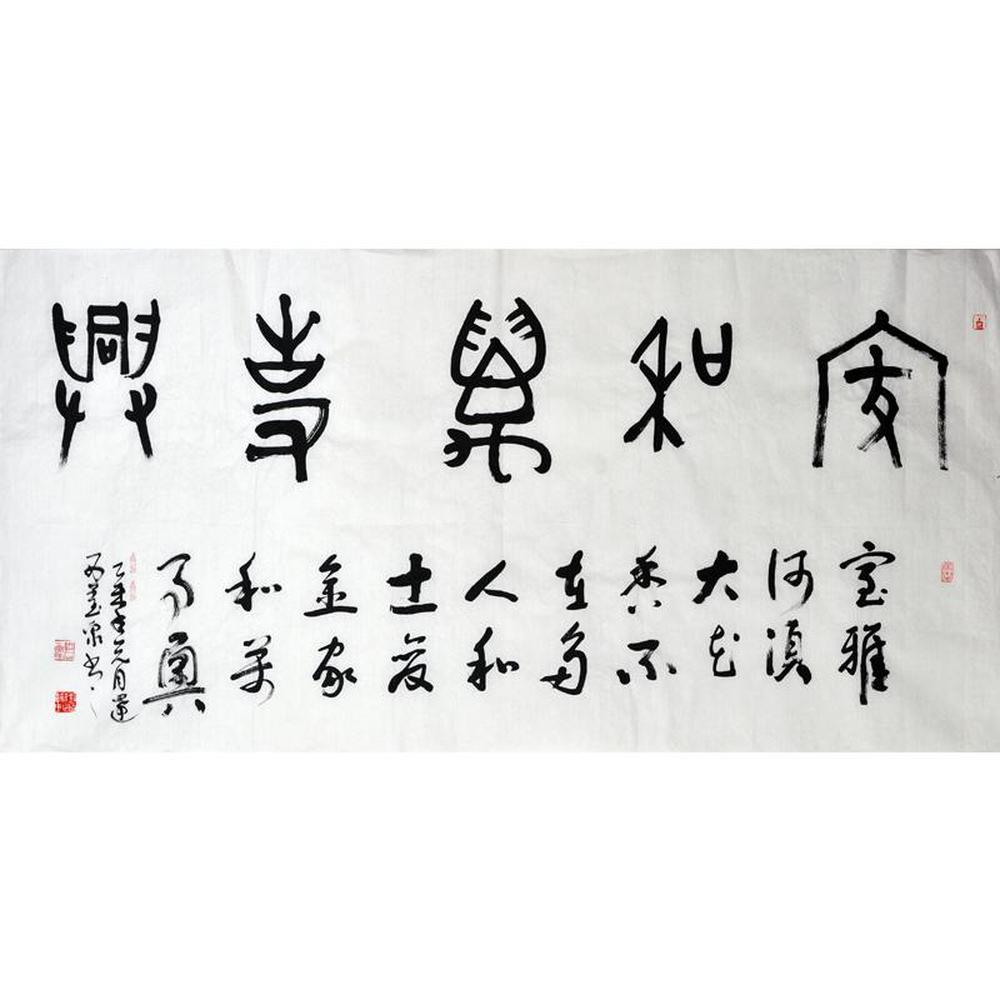 家和萬事興
室雅
何須
大花
香不
在多
人和
土變
金家
和萬
事興
乙未年元月
泉书